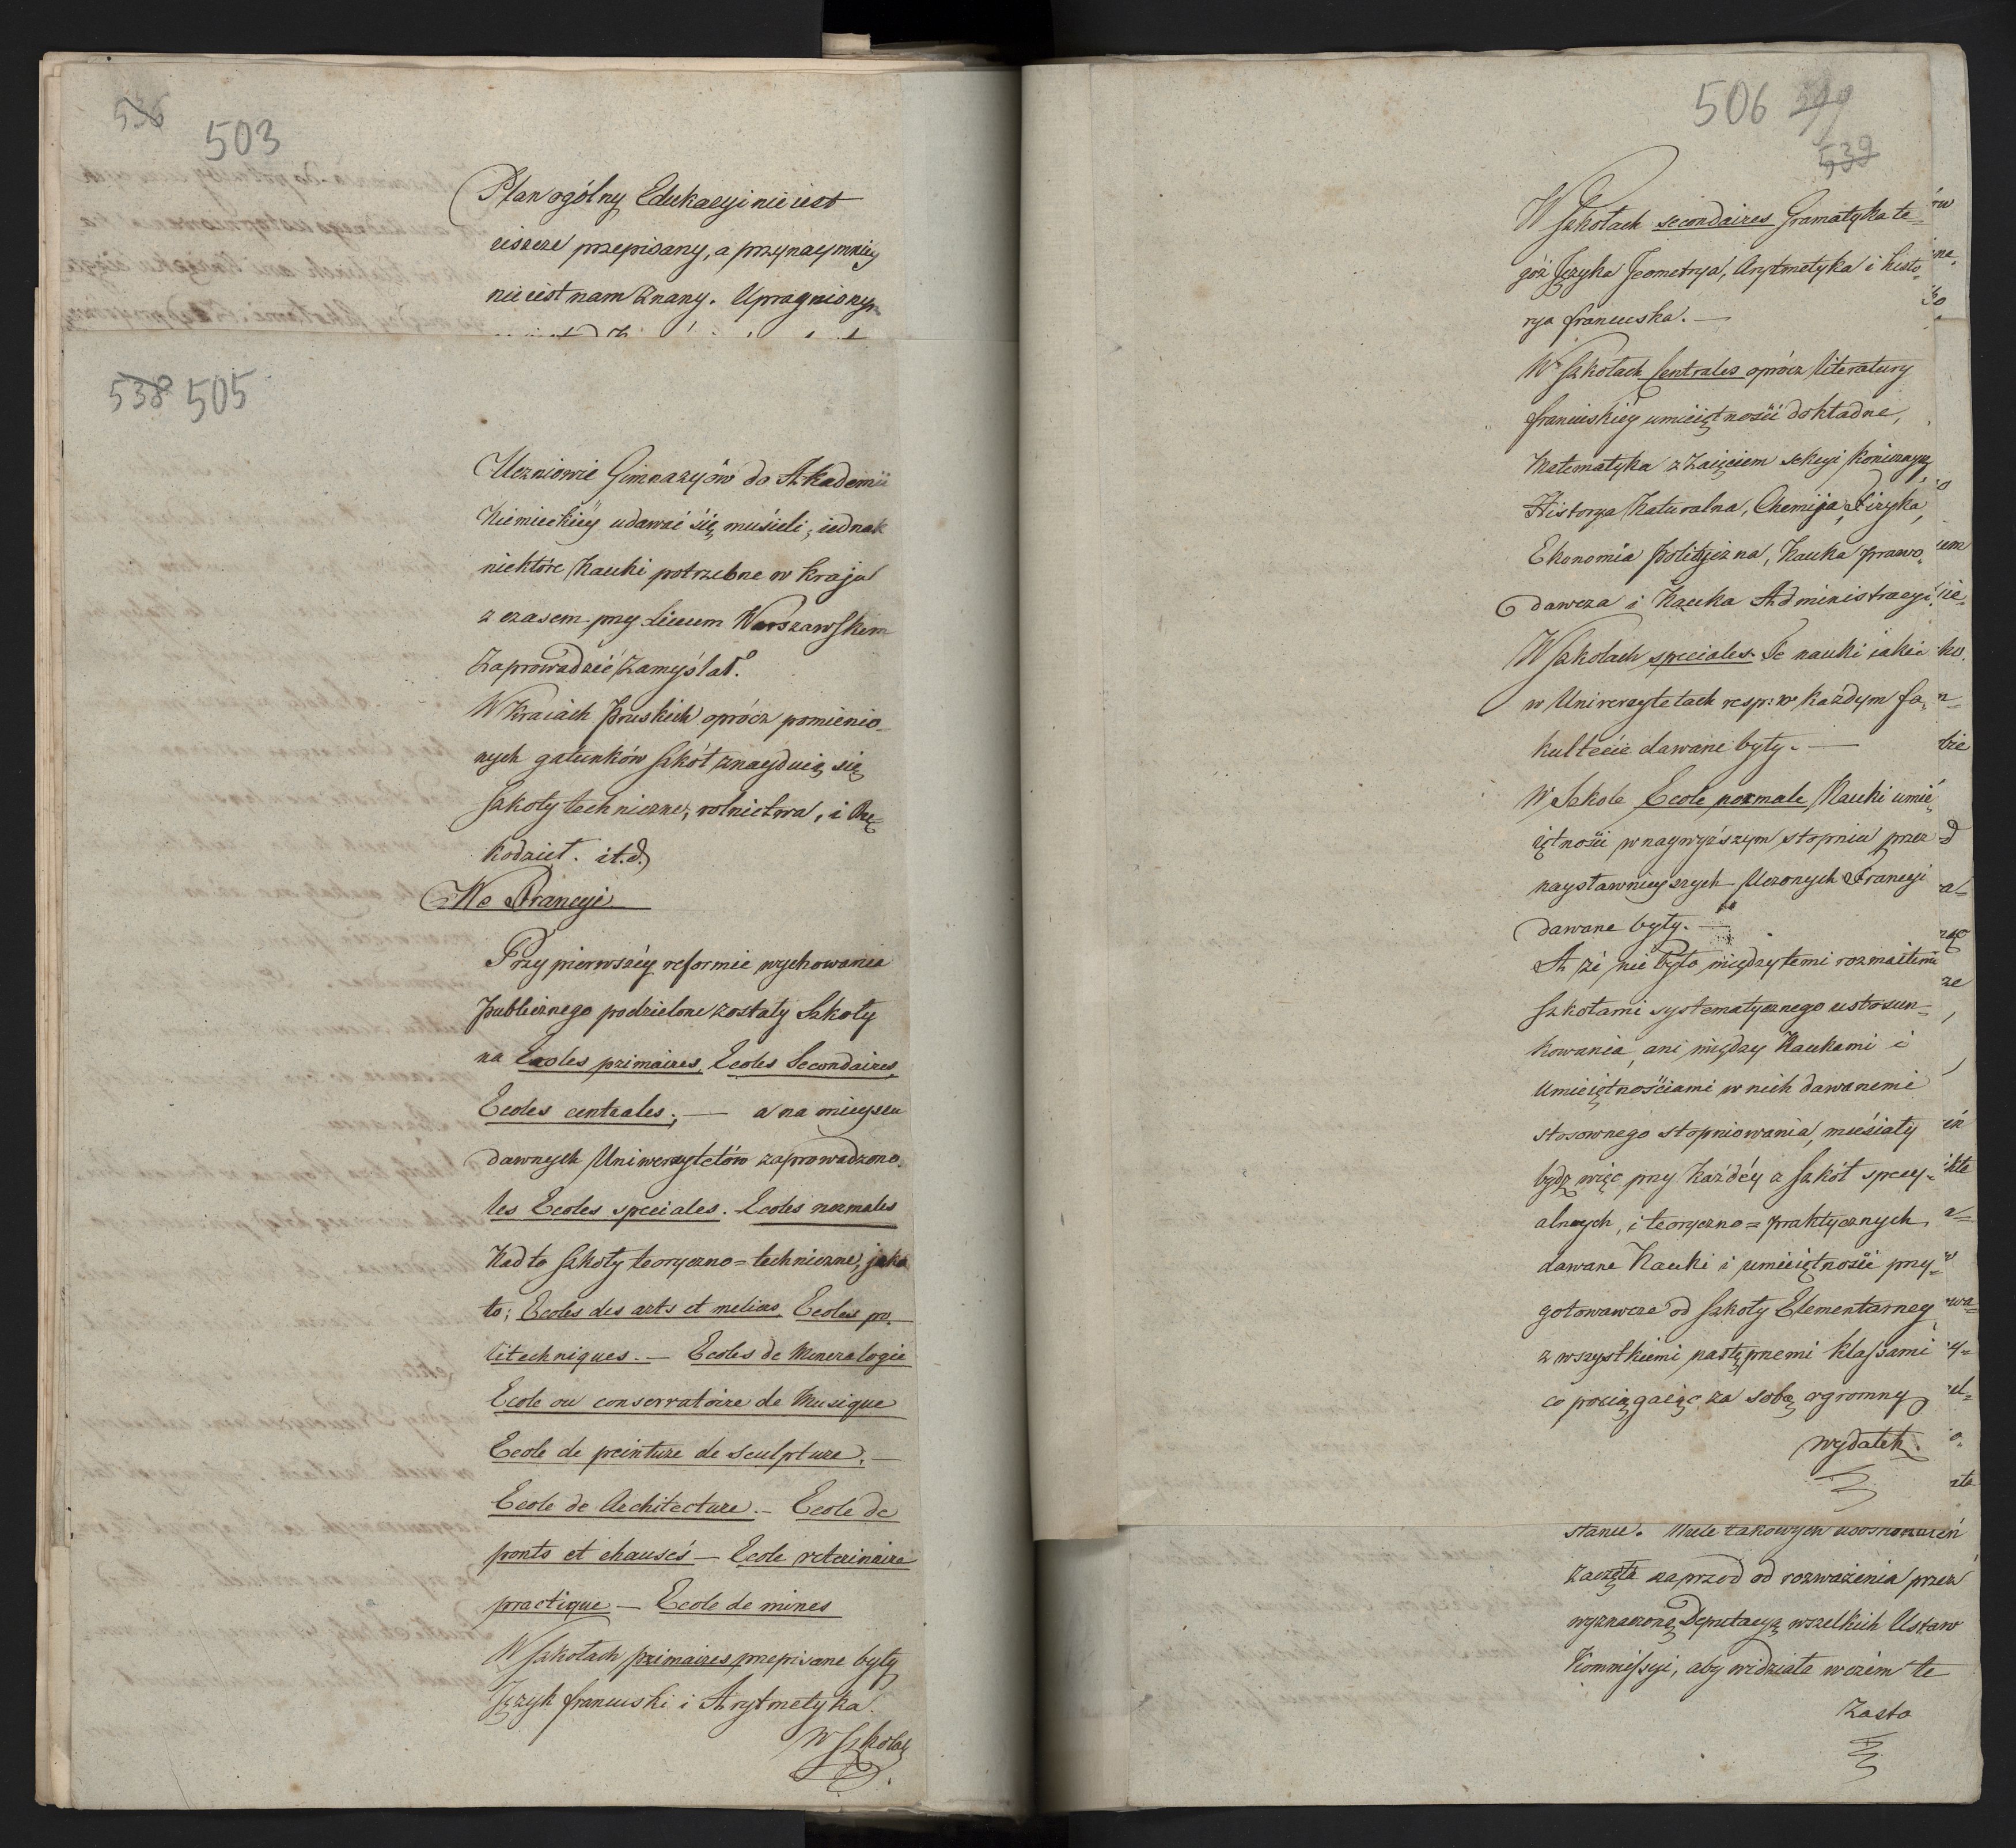 536
503
Plan ogólny Edukacyi nie iest
ieszcze przepisany, a przynaymniey
nie iest nam znany. Upragnionym
538 505
Uczniowie Gimnazyów do Akademii
Niemieckiéy udawać się musieli, iednak
niektóre Nauki potrzebne w kraju
z czasem przy Liceum Warszawskim
Zaprowadzić zamyślał.
W kraiach Pruskich oprócz pomienio-
nych gatunków szkół znayduią się
szkoły techniczne, rolnictwa, i Rę-
kodzieł. it.d.
We Francyi
Przy pierwszéy reformie wychowania
publicznego podzielone zostały Szkoły
na Ecoles primaires, Ecoles Secondaires,
Ecoles centrales; — a na mieyscu
dawnych Uniwersytetów zaprowadzono.
les Ecoles speciales. Ecoles normales
Nadto szkoły teoryczno=techniczne, jako
to; Ecoles des arts et metiers Ecoles po-
litechniques. — Ecoles de Mineralogie
Ecole ou conservatoire de Musique
Ecole de peinture de sculpture. —
Ecole de Architecture. — Ecole de
ponts et chausés — Ecole veterinaire
practique — Ecole de mines
W szkołach primaires przepisane były
Język francuski i Arytmetyka.
W szkołach
506 499
539
W szkołach secondaires Gramatyka te-
góż Języka Jeometrya, Arytmetyka i histo-
rya francuska. —
W szkołach Sentrales oprócz literatury
francuskiéy umieiętności dokładne,
Matematyka z zaięciem sekcyi koniczney,
Historya Naturalna, Chemija, Fizyka,
Ekonomia polityczna, Nauka prawo-
dawcza i Nauka Administracyi.
W szkołach speciales. Te nauki iakie
w Uniwersytetach resp: w każdym fa-
kultecie dawane były. —
W Szkole Ecole normale Nauki umie-
iętności w naywyższym stopniu przez
naysławnieyszych Uczonych Francyi
dawane były. —
A że nie było między temi rozmaitemi
szkołami systematycznego ustosun-
kowania, ani między Naukami i
Umieiętnościami w nich dawanemi
stosownego stopniowania, musiały
bydź więc przy każdéy z szkół specy-
alnych, i teoryczno=praktycznych
dawane Nauki i umieiętności przy-
gotowawcze od szkoły Elementarney
z wszystkiemi następnemi klassami
co pociągaiąc za sobą ogromny
wydatek.
stanie. Wiele takowych
zaczęła naprzód od rozważenia przez
wyznaczoną Deputacyą wszelkich Ustaw
Kommissyi, aby widziała w czém te
Zasto